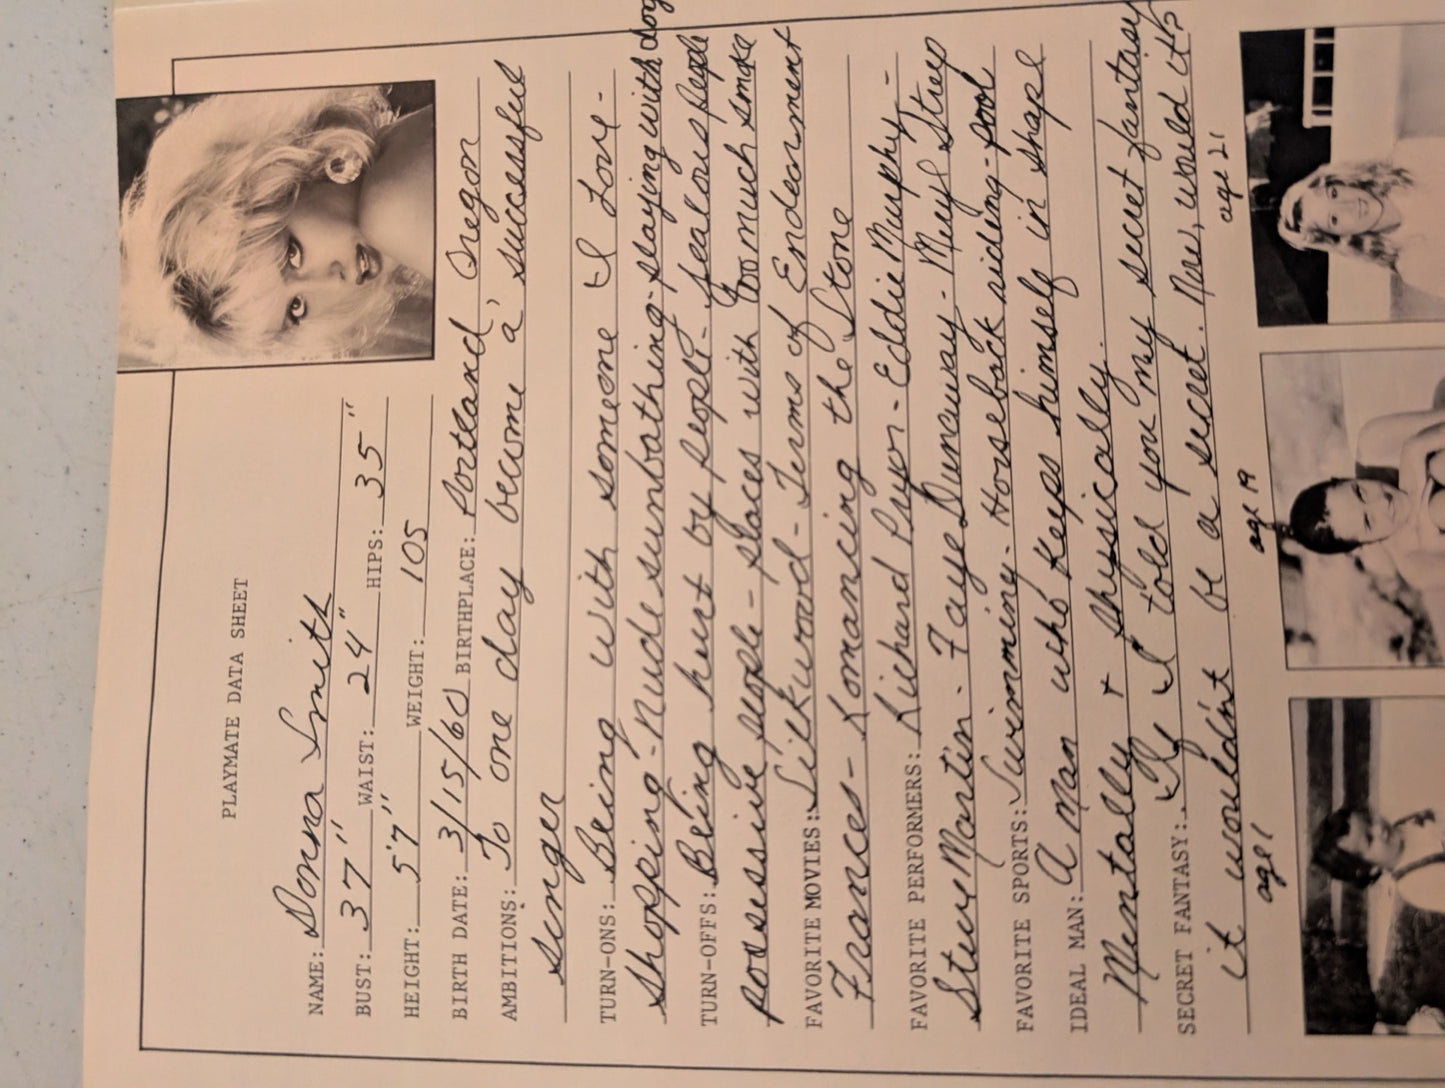 PLAYMATE DATA SHEET
NAME: Donna Smith
BUST: 37" WAIST: 24" HIPS: 35"
HEIGHT: 5'7" WEIGHT: 105
BIRTH DATE: 3/15/60 BIRTHPLACE: Portland, Oregon
AMBITIONS: To one day become a successful
singer
TURN-ONS: Being with someone I Love -
shopping - nude sunbathing - playing with dog
TURN-OFFS: Being hurt by people - jealous people
possessive people - places with too much smoke
FAVORITE MOVIES: Silkwood - Terms of Endearment
Frances - Romancing the Stone
FAVORITE PERFORMERS: Richard Pryor - Eddie Murphy -
Steve Martin - Faye Dunaway - Meryl Streep
FAVORITE SPORTS: Swimming - Horseback riding - pool
IDEAL MAN: A man who keeps himself in shape
Mentally + physically.
SECRET FANTASY: If I told you my secret fantasy
it wouldn't be a secret. Now, would it?
age 1
age 19
age 21